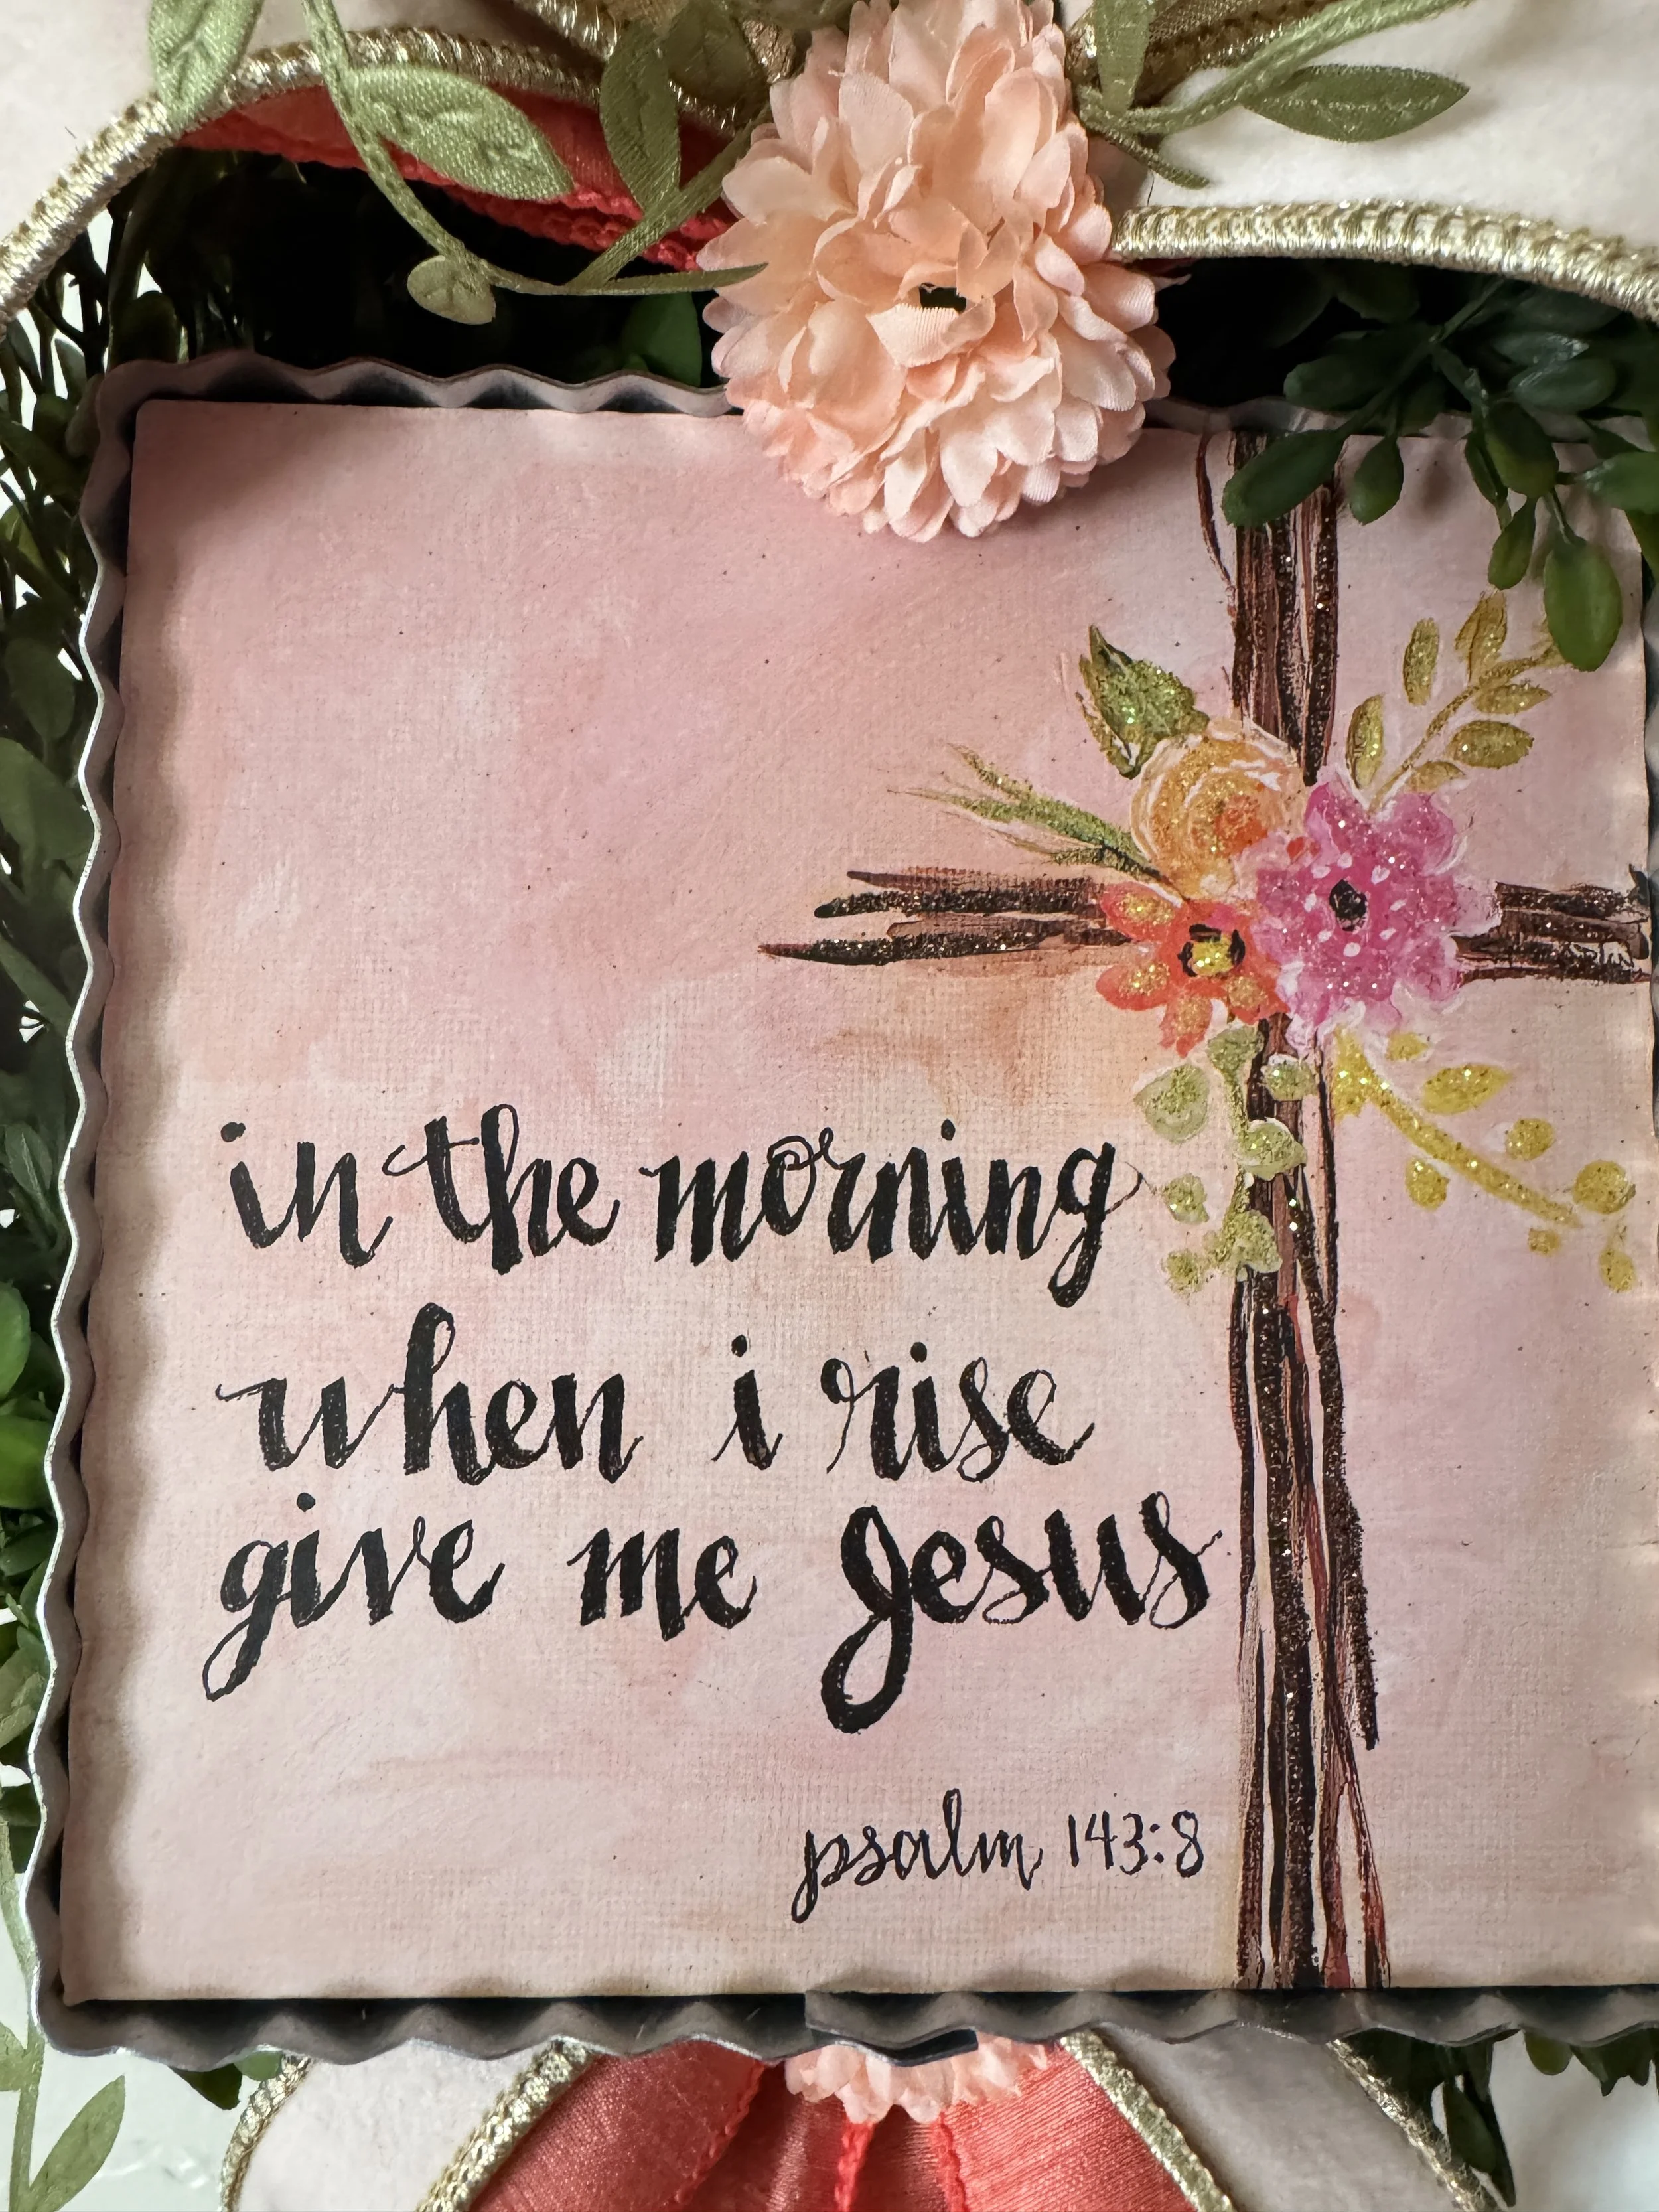 in the morning
when i rise
give me Jesus
psalm 143:8